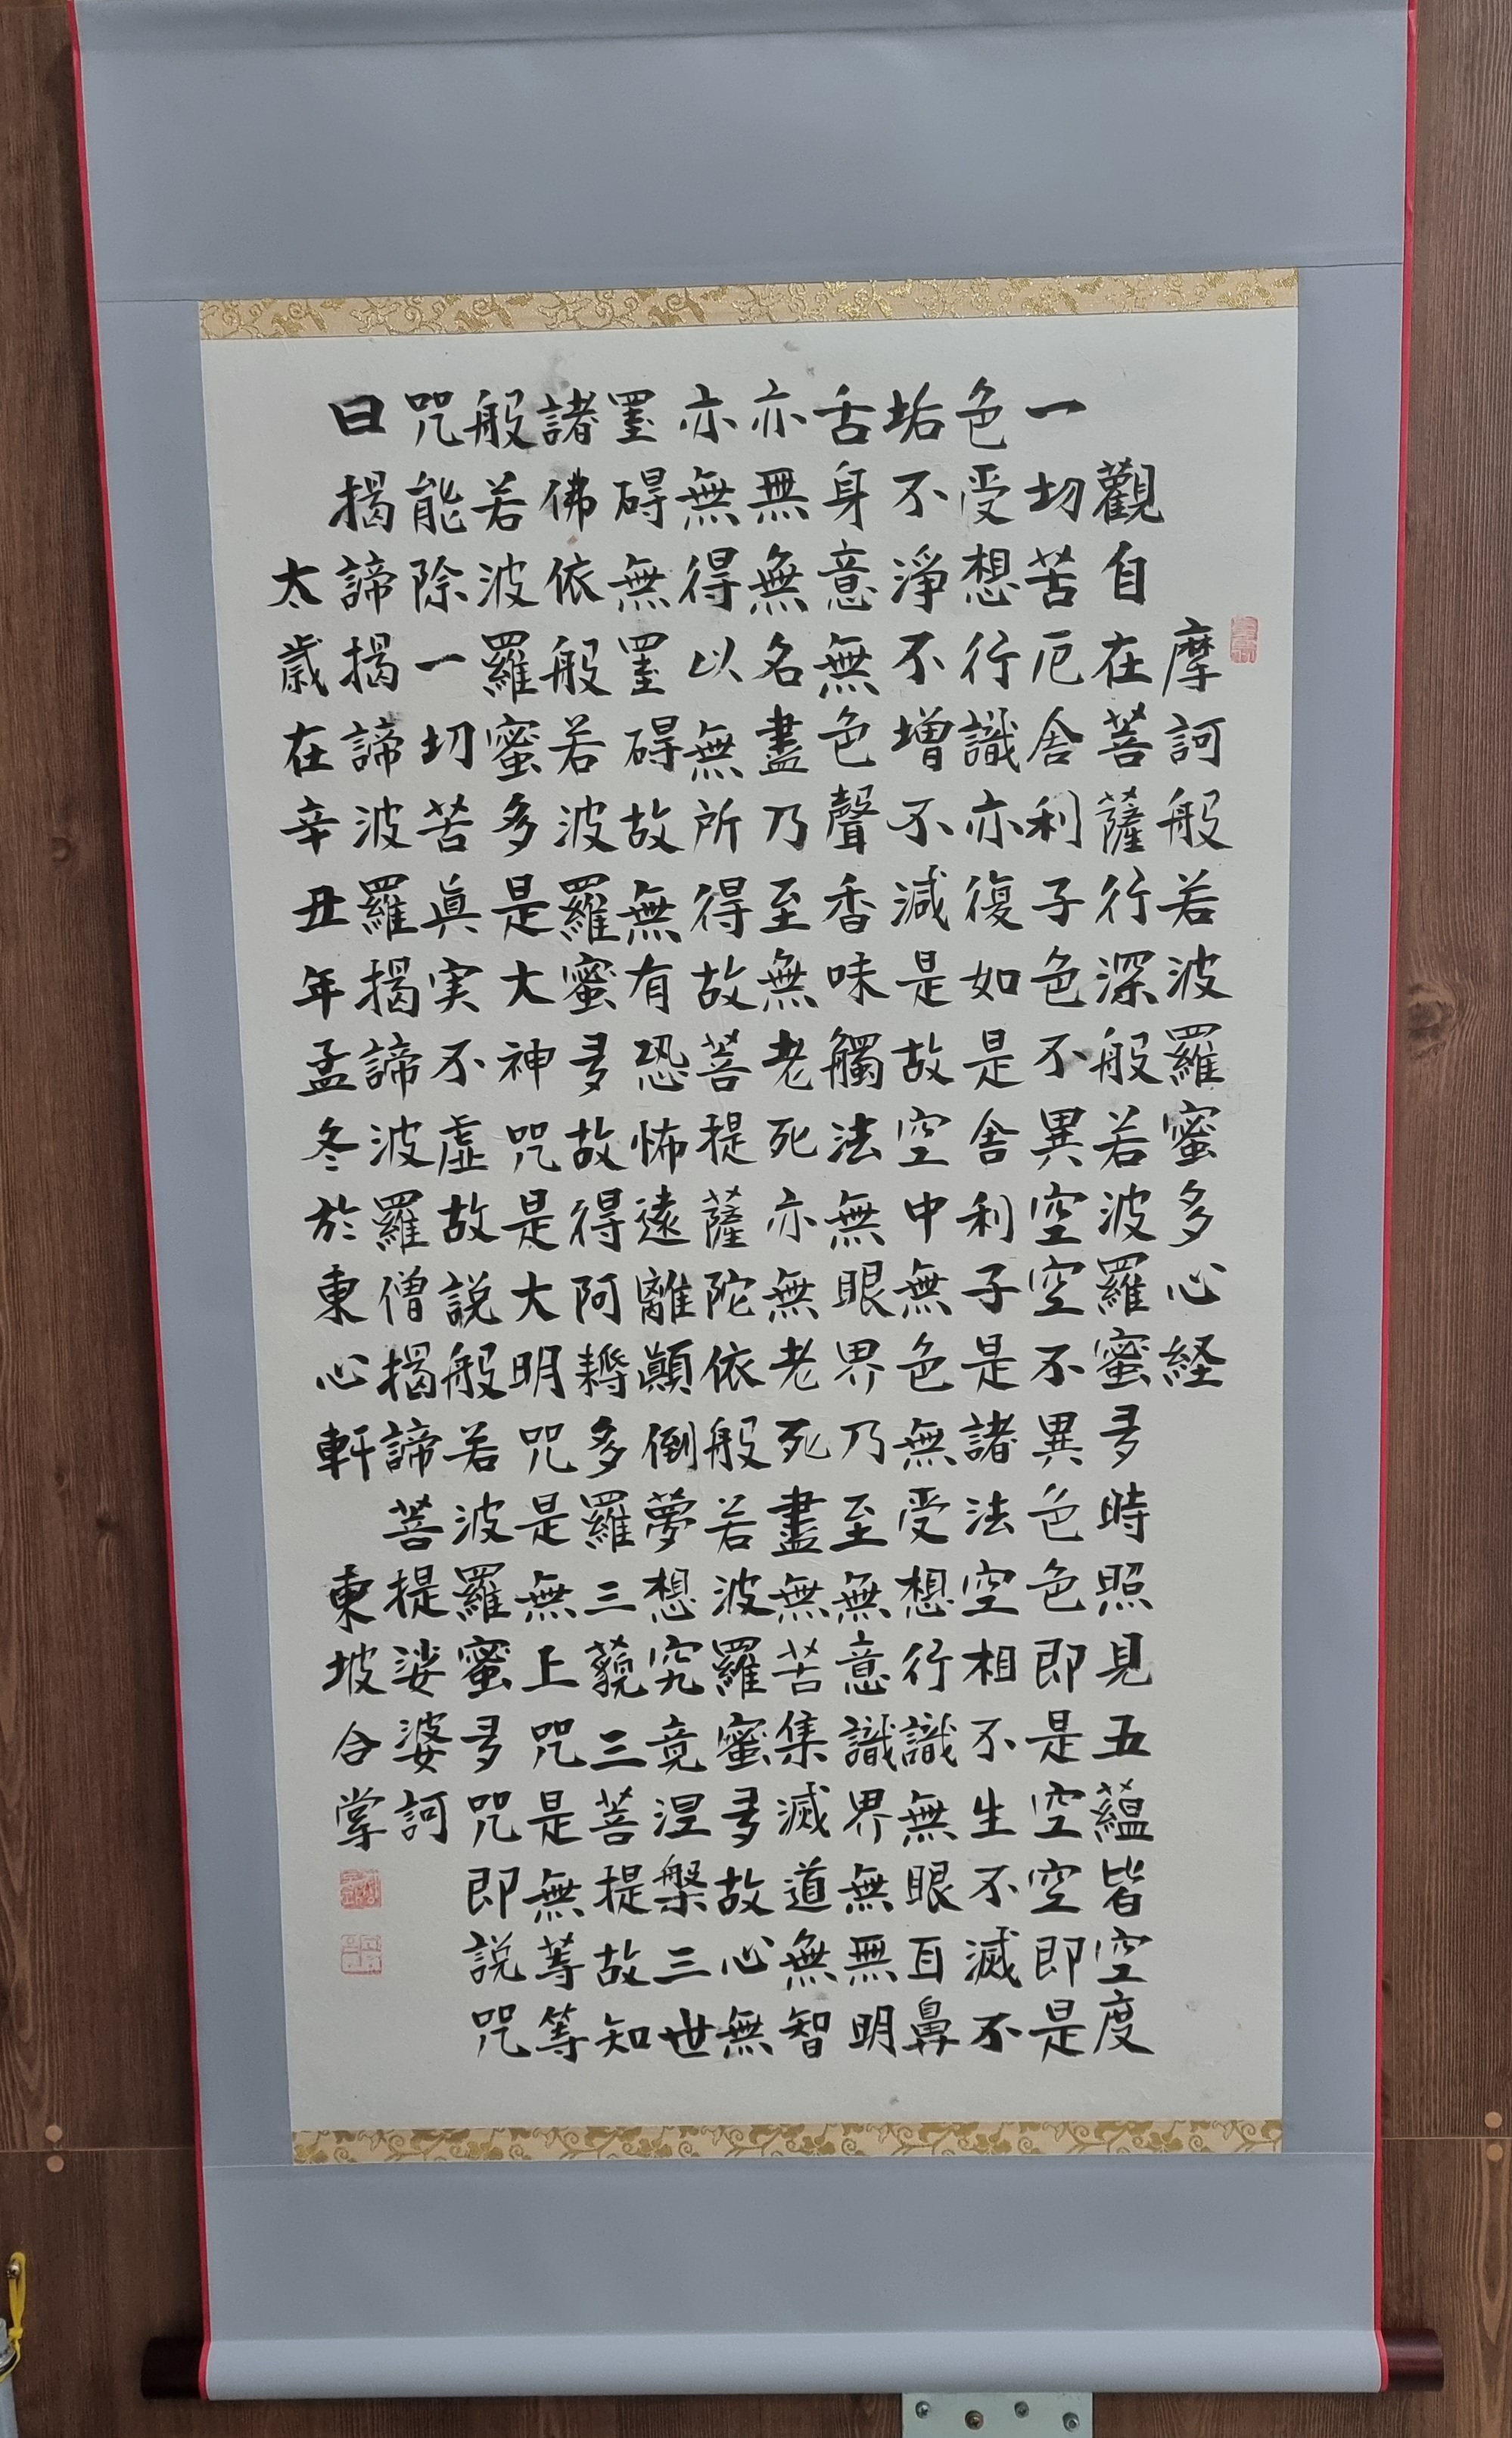 摩訶般若波羅蜜多心経
觀自在菩薩行深般若波羅蜜多時照見五蘊皆空度
一切苦厄舎利子色不異空空不異色色即是空空即是
色受想行識亦復如是舎利子是諸法空相不生不滅不
垢不淨不增不減是故空中無色無受想行識無眼耳鼻
舌身意無色聲香味觸法無眼界乃至無意識界無無明
亦無無名盡乃至無老死亦無老死盡無苦集滅道無智
亦無得以無所得故菩提薩陀依般若波羅蜜多故心無
罣碍無罣碍故無有恐怖遠離顚倒夢想究竟涅槃三世
諸佛依般若波羅蜜多故得阿耨多羅三藐三菩提故知
般若波羅蜜多是大神咒是大明咒是無上咒是無等等
咒能除一切苦眞実不虚故説般若波羅蜜多咒即説咒
曰揭諦揭諦波羅揭諦波羅僧揭諦菩提娑婆訶
太歲在辛丑年孟冬於東心軒 東坡合掌